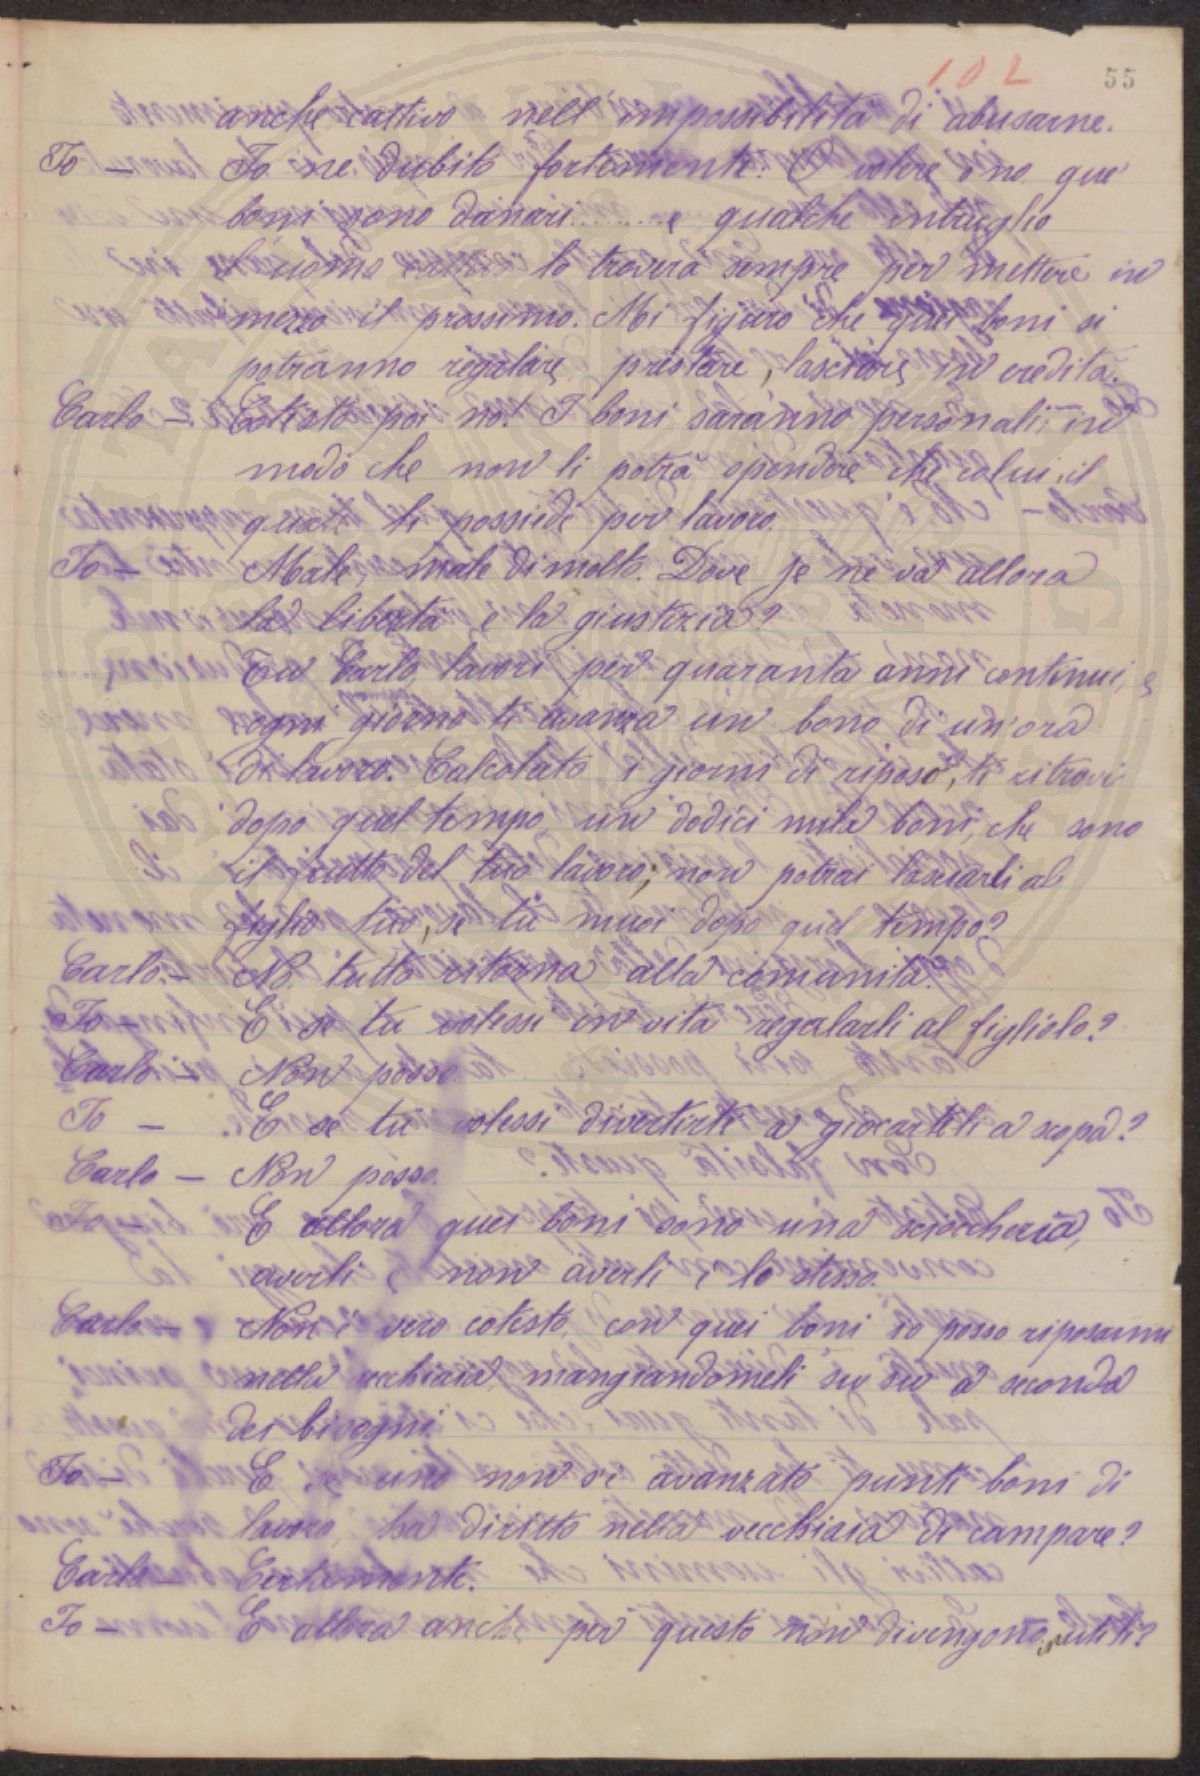 102 55
anche cattivo nell'impossibilità di abusarne.
Io — Io ne dubito fortemente. O volere o no que'
boni sono danari...... e qualche intruglio
l'uomo lo troverà sempre per mettere in
mezzo il prossimo. Mi figuro che quei boni si
potranno regalare, prestare, lasciare in eredità.
Carlo — Cotesto poi no! I boni saranno personali, in
modo che non li potrà spendere che colui, il
quale li possiede per lavoro.
Io — Male, male di molto. Dove se ne va allora
la libertà e la giustizia?
Tu Carlo, lavori per quaranta anni continui, e
ogni giorno ti avanza un bono di un'ora
di lavoro. Calcolato i giorni di riposo, ti ritrovi
dopo quel tempo un dodici mila boni, che sono
il frutto del tuo lavoro; non potrai lasciarli al
figlio tuo, se tu muoi dopo quel tempo?
Carlo — No. tutto ritorna alla comunità.
Io — E se tu volessi in vita regalarli al figliolo?
Carlo — Non posso.
Io — E se tu volessi divertirti a giocarteli a scopa?
Carlo — Non posso.
Io — E allora quei boni sono una sciaccheria,
averli e non averli è lo stesso.
Carlo — Non è vero cotesto, con quei boni io posso riposarmi
nella vecchiaia, mangiandomeli su su a seconda
dei bisogni.
Io — E se uno non si è avanzato punti boni di
lavoro, ha diritto nella vecchiaia di campare?
Carlo — Certamente.
Io — E allora anche per questo non divengono inutili?